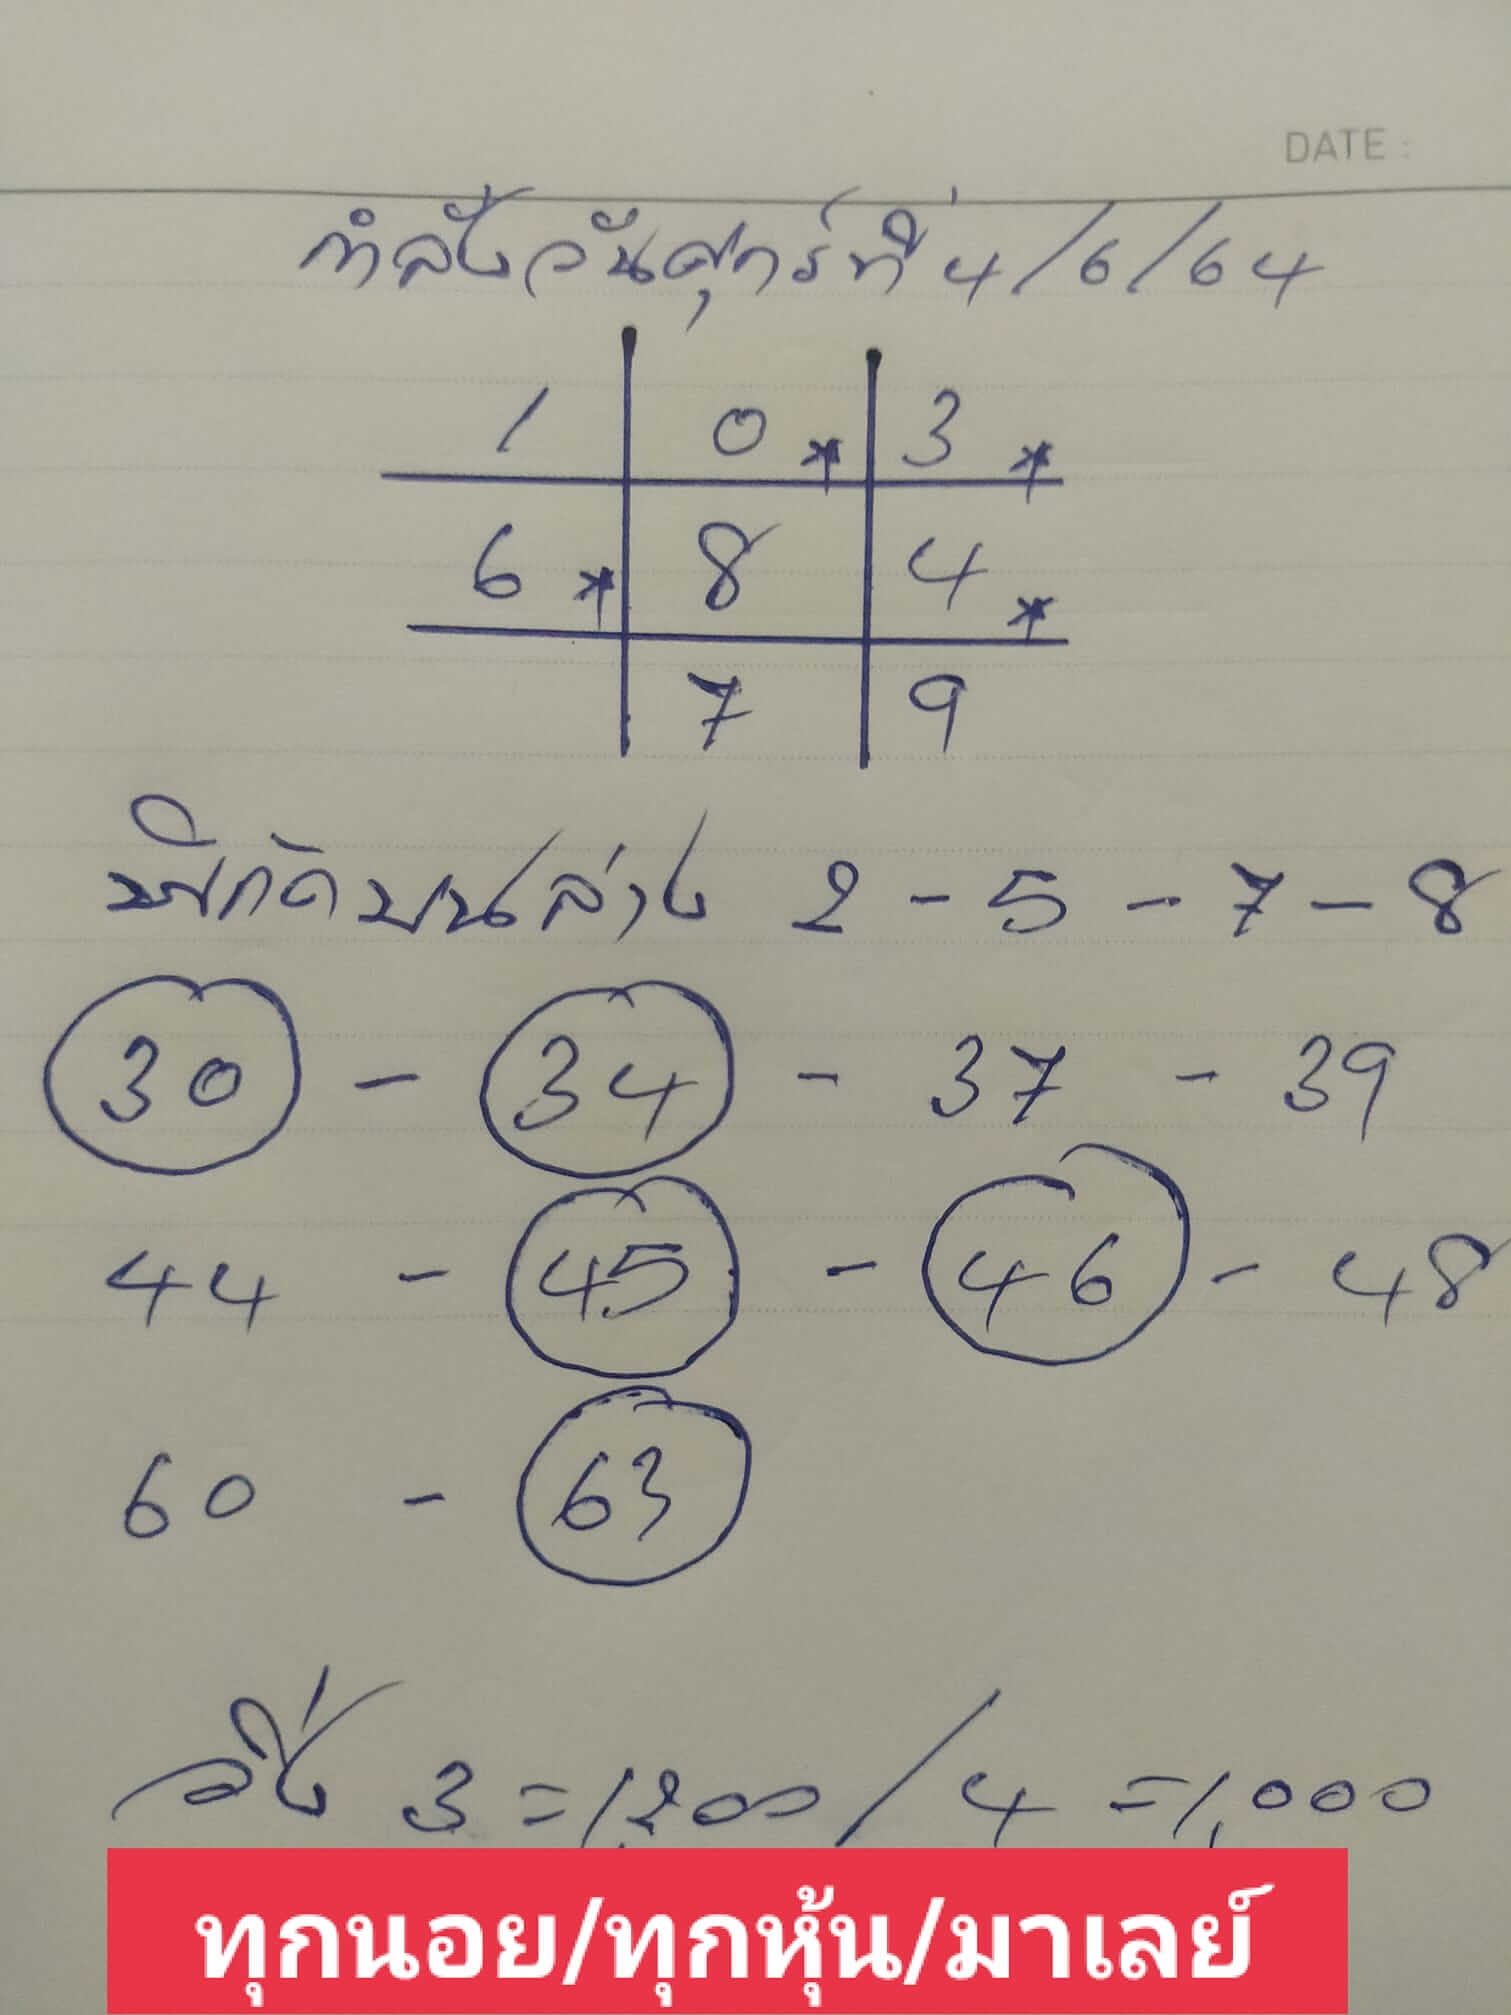 DATE :
กำลังวันศุกร์ที่ 4/6/64
1 0* 3*
6* 8 4*
7 9
พิกัดบนล่าง 2 - 5 - 7 - 8
30 - 34 - 37 - 39
44 - 45 - 46 - 48
60 - 63
วิ่ง 3 = 1,200 / 4 = 1,000
ทุกนอย/ทุกหุ้น/มาเลย์